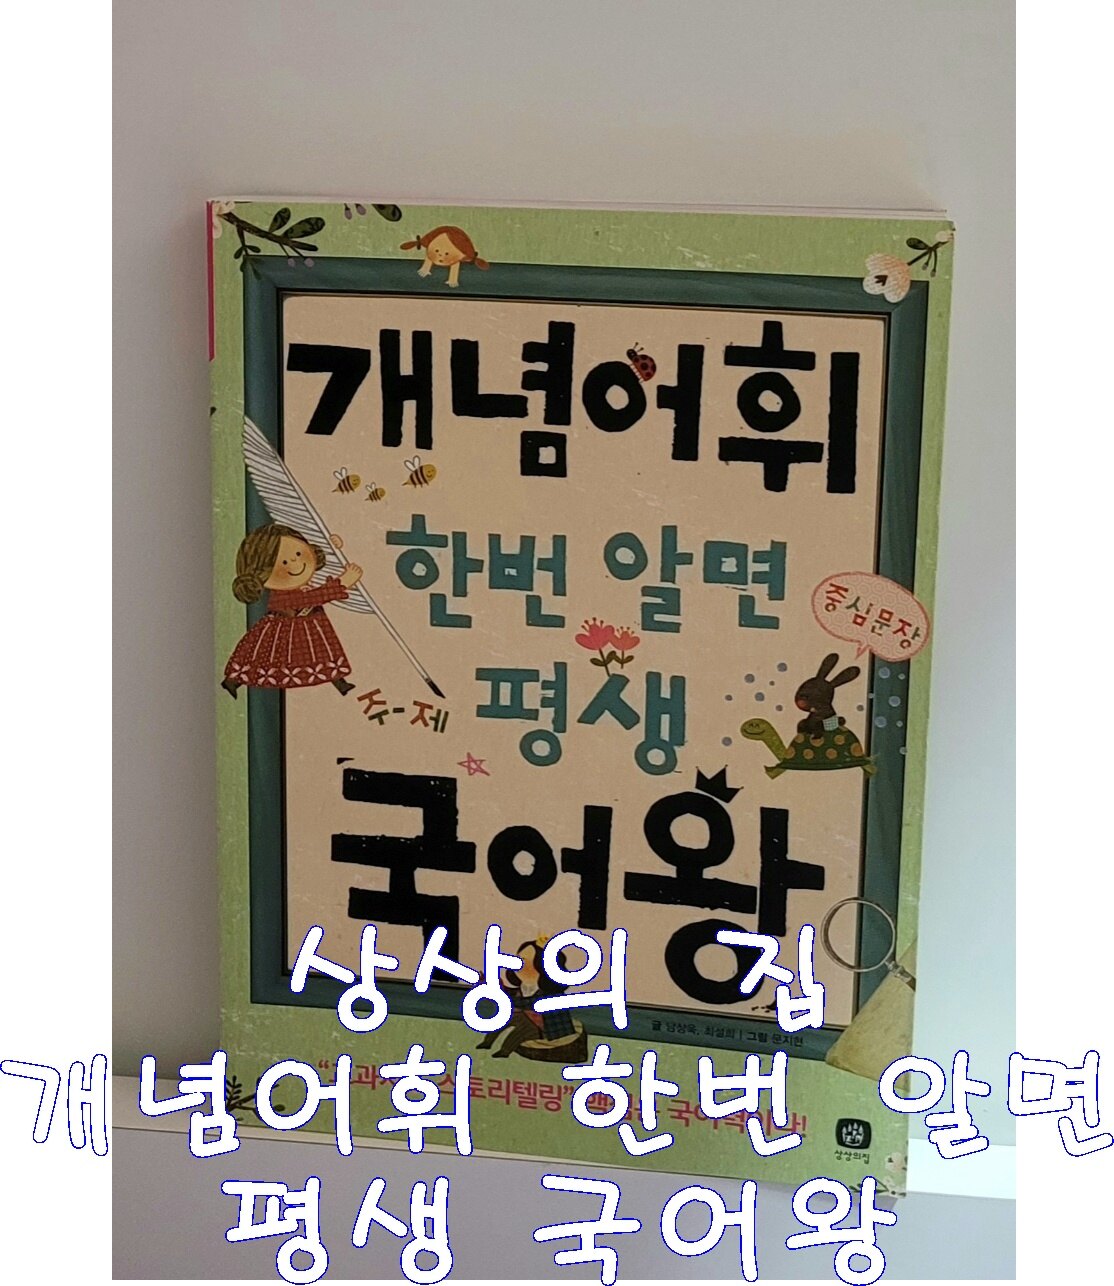 개념어휘
한번 알면
중심문장
평생
주제
국어왕
상상의 집
글 남상욱, 최설희 | 그림 문지현
개념어휘 한번 알면
스토리텔링”
상상의집
평생 국어왕